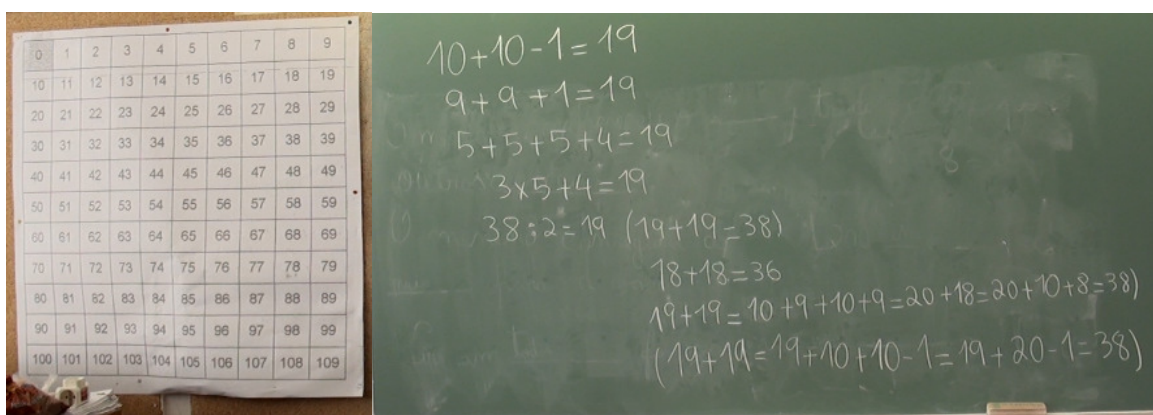 0 1 2 3 4 5 6 7 8 9
10 11 12 13 14 15 16 17 18 19
20 21 22 23 24 25 26 27 28 29
30 31 32 33 34 35 36 37 38 39
40 41 42 43 44 45 46 47 48 49
50 51 52 53 54 55 56 57 58 59
60 61 62 63 64 65 66 67 68 69
70 71 72 73 74 75 76 77 78 79
80 81 82 83 84 85 86 87 88 89
90 91 92 93 94 95 96 97 98 99
100 101 102 103 104 105 106 107 108 109
10+10-1=19
9+9+1=19
5+5+5+4=19
3x5+4=19
38:2=19 (19+19=38)
18+18=36
19+19=10+9+10+9=20+18=20+10+8=38)
(19+19=19+10+10-1=19+20-1=38)